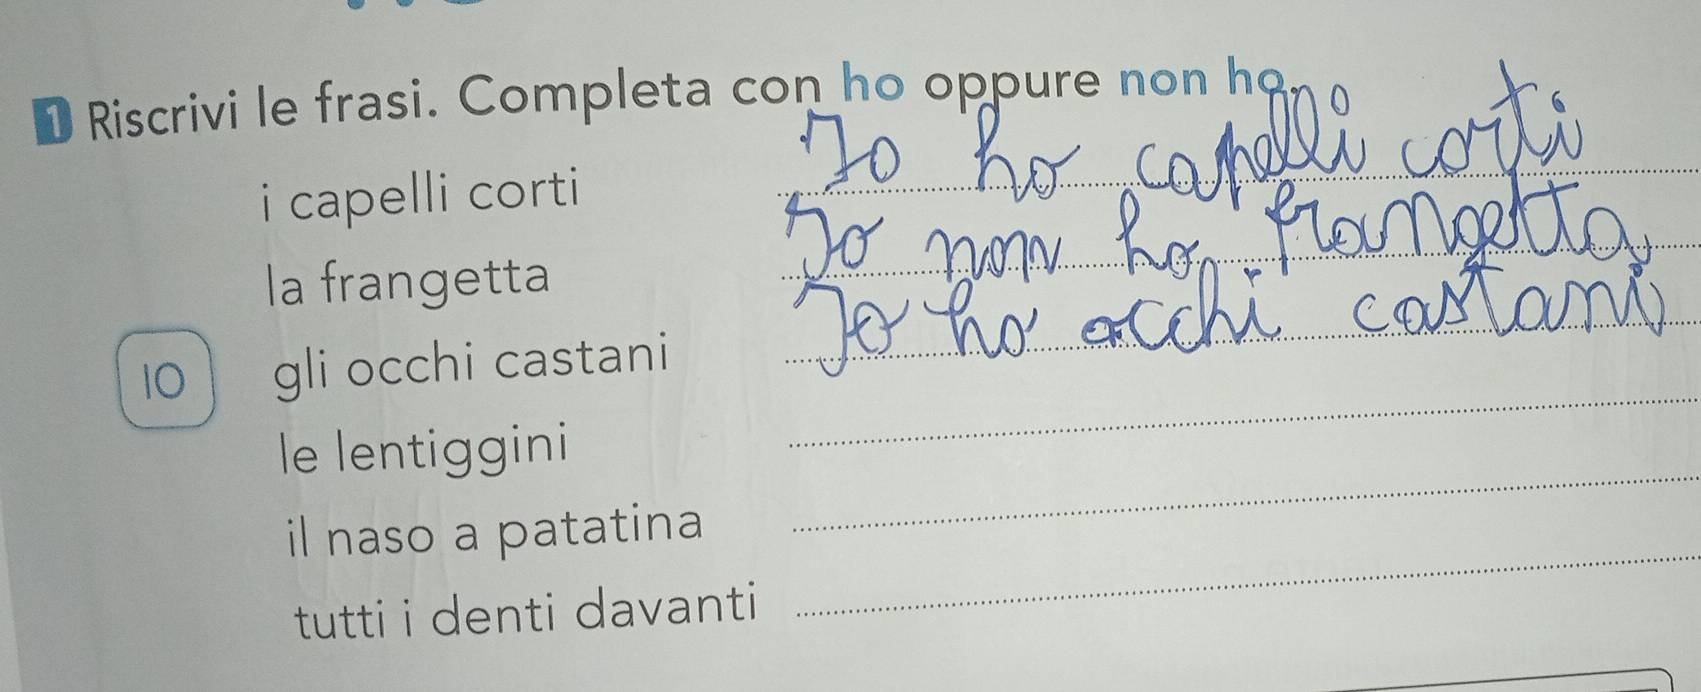 1 Riscrivi le frasi. Completa con ho oppure non ho.
i capelli corti
Io ho capelli corti
la frangetta
Io non ho frangetta
IO
gli occhi castani
Io ho occhi castani
le lentiggini
il naso a patatina
tutti i denti davanti